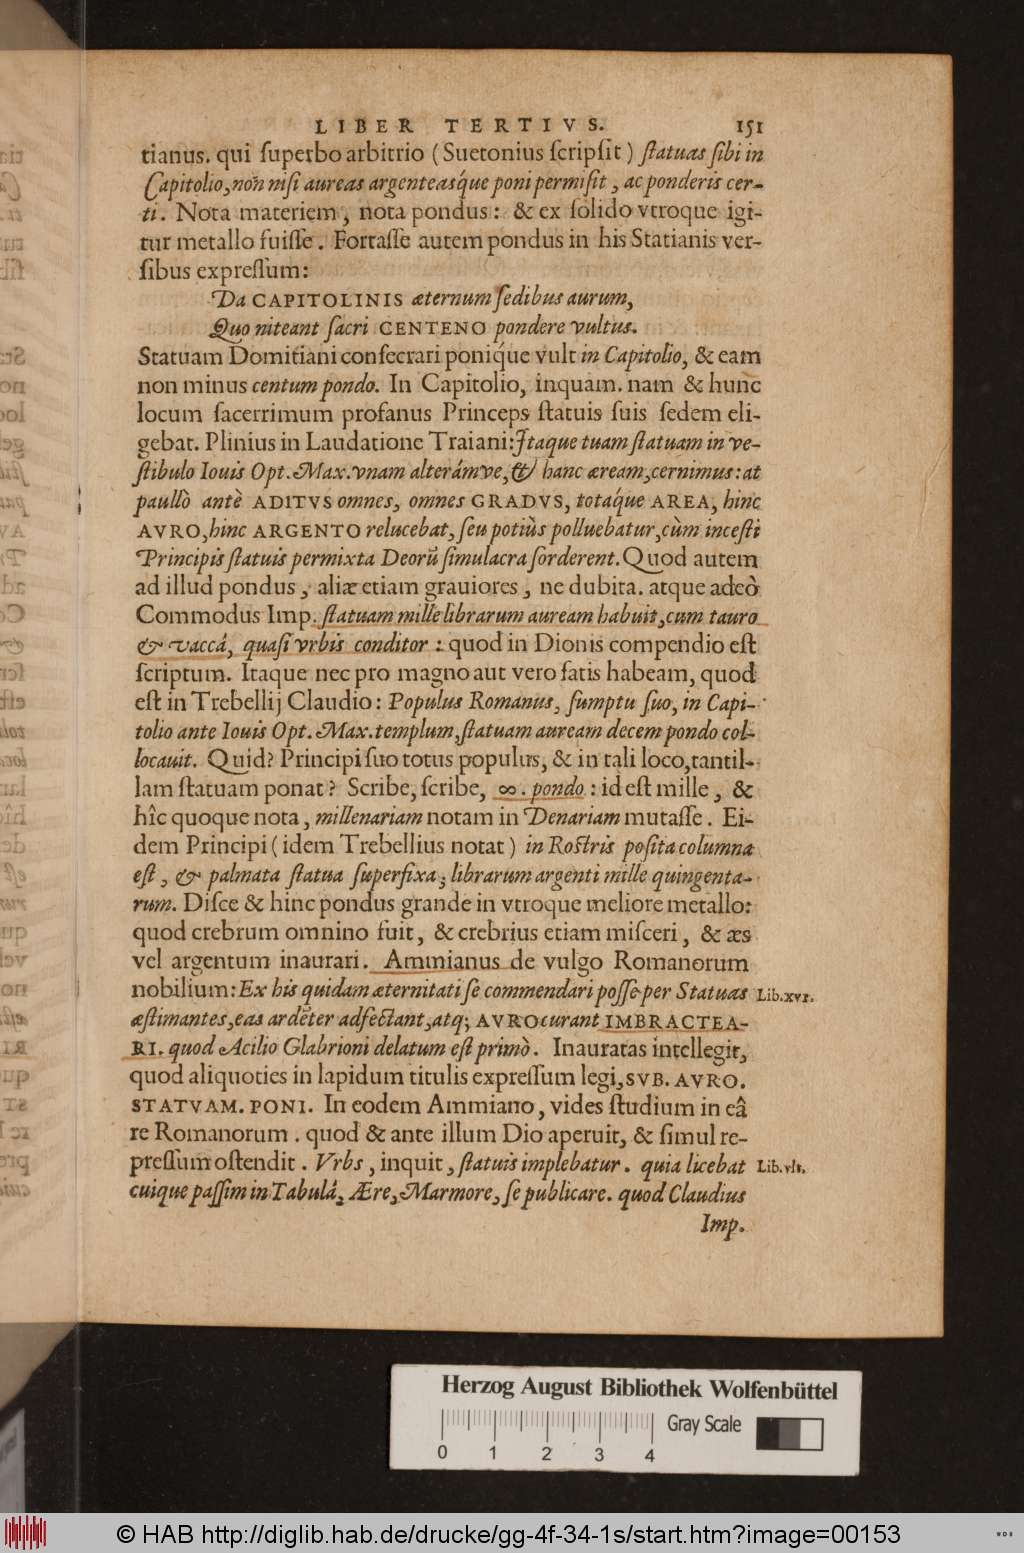 LIBER TERTIVS. 151
tianus. qui ſuperbo arbitrio (Suetonius ſcripſit) ſtatuas ſibi in
Capitolio, non niſi aureas argenteasq́ue poni permiſit, ac ponderis cer-
ti. Nota materiem, nota pondus: & ex ſolido vtroque igi-
tur metallo fuiſſe. Fortaſſe autem pondus in his Statianis ver-
ſibus expreſſum:
Da CAPITOLINIS æternum ſedibus aurum,
Quo niteant ſacri CENTENO pondere vultus.
Statuam Domitiani conſecrari poniq́ue vult in Capitolio, & eam
non minus centum pondo. In Capitolio, inquam. nam & hunc
locum ſacerrimum profanus Princeps ſtatuis ſuis ſedem eli-
gebat. Plinius in Laudatione Traiani: Itaque tuam ſtatuam in ve-
ſtibulo Iouis Opt. Max. vnam alterámve, & hanc æream, cernimus: at
paullò antè ADITVS omnes, omnes GRADVS, totaq́ue AREA, hinc
AVRO, hinc ARGENTO relucebat, ſeu potiùs polluebatur, cùm inceſti
Principis ſtatuis permixta Deorũ ſimulacra ſorderent. Quod autem
ad illud pondus, aliæ etiam grauiores, ne dubita. atque adeò
Commodus Imp. ſtatuam mille librarum auream habuit, cum tauro
& vaccâ, quaſi vrbis conditor: quod in Dionis compendio eſt
ſcriptum. Itaque nec pro magno aut vero fatis habeam, quod
eſt in Trebellij Claudio: Populus Romanus, ſumptu ſuo, in Capi-
tolio ante Iouis Opt. Max. templum, ſtatuam auream decem pondo col-
locauit. Quid? Principi ſuo totus populus, & in tali loco, tantil-
lam ſtatuam ponat? Scribe, ſcribe, ∞. pondo: id eſt mille, &
hîc quoque nota, millenariam notam in Denariam mutaſſe. Ei-
dem Principi (idem Trebellius notat) in Roſtris poſita columna
eſt, & palmata ſtatua ſuperfixa; librarum argenti mille quingenta-
rum. Diſce & hinc pondus grande in vtroque meliore metallo:
quod crebrum omnino fuit, & crebrius etiam miſceri, & æs
vel argentum inaurari. Ammianus de vulgo Romanorum
nobilium: Ex his quidam æternitati ſe commendari poſſe per Statuas Lib. XVI.
æſtimantes, eas ardẽter adfectant, atq; AVRO curant IMBRACTEA-
RI. quod Acilio Glabrioni delatum eſt primò. Inauratas intellegit,
quod aliquoties in lapidum titulis expreſſum legi, SVB. AVRO.
STATVAM. PONI. In eodem Ammiano, vides ſtudium in eâ
re Romanorum. quod & ante illum Dio aperuit, & ſimul re-
preſſum oſtendit. Vrbs, inquit, ſtatuis implebatur. quia licebat Lib. vlt.
cuique paſſim in Tabulâ, Ære, Marmore, ſe publicare. quod Claudius
Imp.
Herzog August Bibliothek Wolfenbüttel
Gray Scale
0 1 2 3 4
© HAB http://diglib.hab.de/drucke/gg-4f-34-1s/start.htm?image=00153